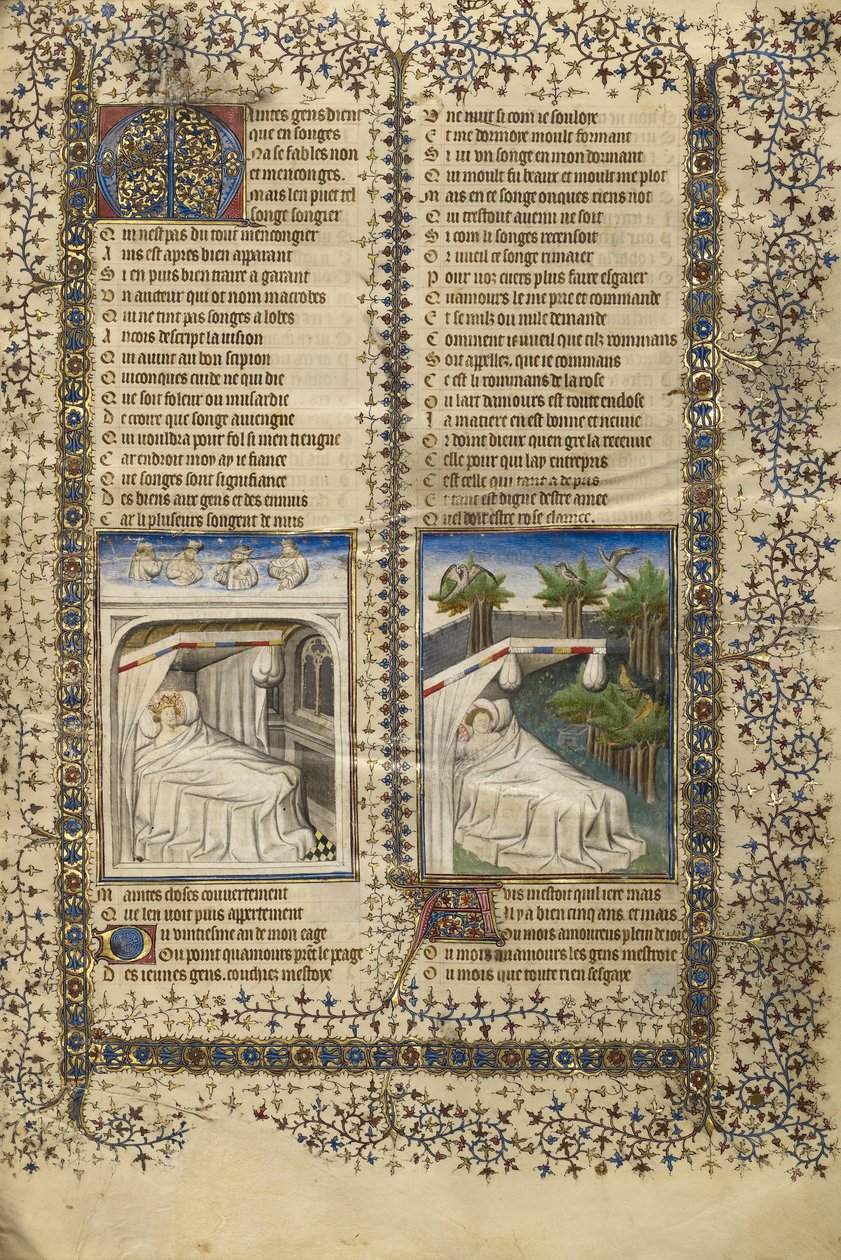 Maintes gens dient
que en songes
Na se fables non
et menconges.
Mais len puet tel
songe songier
Qui nest pas du tout mencongier
Ains est apres bien apparant
Si en puis bien traire a garant
Vn aucteur qui ot nom macrobes
Qui ne tint pas songes a lobes
Ancois descript la vision
Qui auint au bon scipion
Quiconques cuide ne qui die
Que soit foleur ou musardie
De croire que songe auiengne
Qui vouldra pour fol si men tiengne
Car endroit moy ay ie fiance
Que songes sont signifiance
Des biens aux gens et des ennuis
Car li pluseurs songent de nuis
Maintes choses couuertement
Que len voit puis appertement
Ou vintiesme an de mon eage
Ou point quamours prent le peage
Des ieunes gens. couchiez mestoye
Vne nuit si com ie souloye
Et me dormoye moult forment
Si vi vn songe en mon dormant
Qui moult fu beaux et moult me plot
Mais en ce songe onques riens not
Qui trestout auenu ne soit
Si com li songes recensoit
Or vueil ce songe rimaier
Pour voz cuers plus faire esgaier
Quamours le me prie et commande
Et se nulz ou nulle demande
Comment ie vueil que cilz rommans
Soit appellez. que ie commans
Ce est li rommans de la rose
Ou lart damours est toute enclose
La matiere en est bonne et neuue
Or doint dieux quen gre la receuue
Celle pour qui lay entrepris
Cest celle qui tant a de pris
Et tant est digne destre amee
Quel doit estre rose clamee.
Auis mestoit quil iere mais
Il y a bien cinq ans et mais
Qou mois amoureus plein de ioie
Ou mois quamours les gens mestroie
Ou mois que toute rien sesgaye